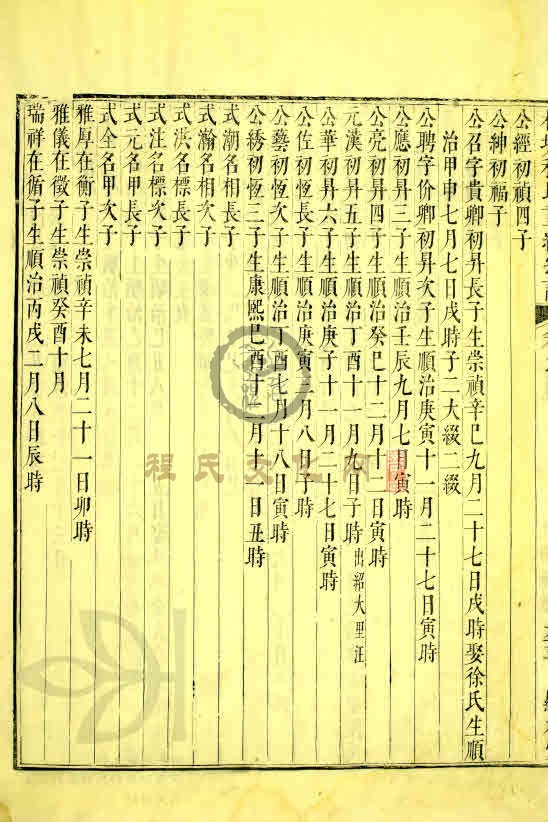 公經初禎四子
公紳初福子
公召字貴卿初昇長子生崇禎辛巳九月二十七日戌時娶徐氏生順
治甲申七月七日戌時子二大綴二綴
公聘字价卿初昇次子生順治庚寅十一月二十七日寅時
公應初昇三子生順治壬辰九月七日寅時
公亮初昇四子生順治癸巳十二月十二日寅時
元漢初昇五子生順治丁酉十一月九日子時出紹大里汪
公華初昇六子生順治庚子十一月二十七日寅時
公佐初恆長子生順治庚寅 月八日子時
公藝初恆次子生順治丁酉七月十八日寅時
公綉初恆三子生康熙己酉十二月十一日丑時
式潮名相長子
式瀚名相次子
式洪名標長子
式注名標次子
式元名甲長子
式全名甲次子
雅厚在衡子生崇禎辛未七月二十一日卯時
雅儀在徵子生崇禎癸酉十月
瑞祥在循子生順治丙戌二月八日辰時
程氏文化网